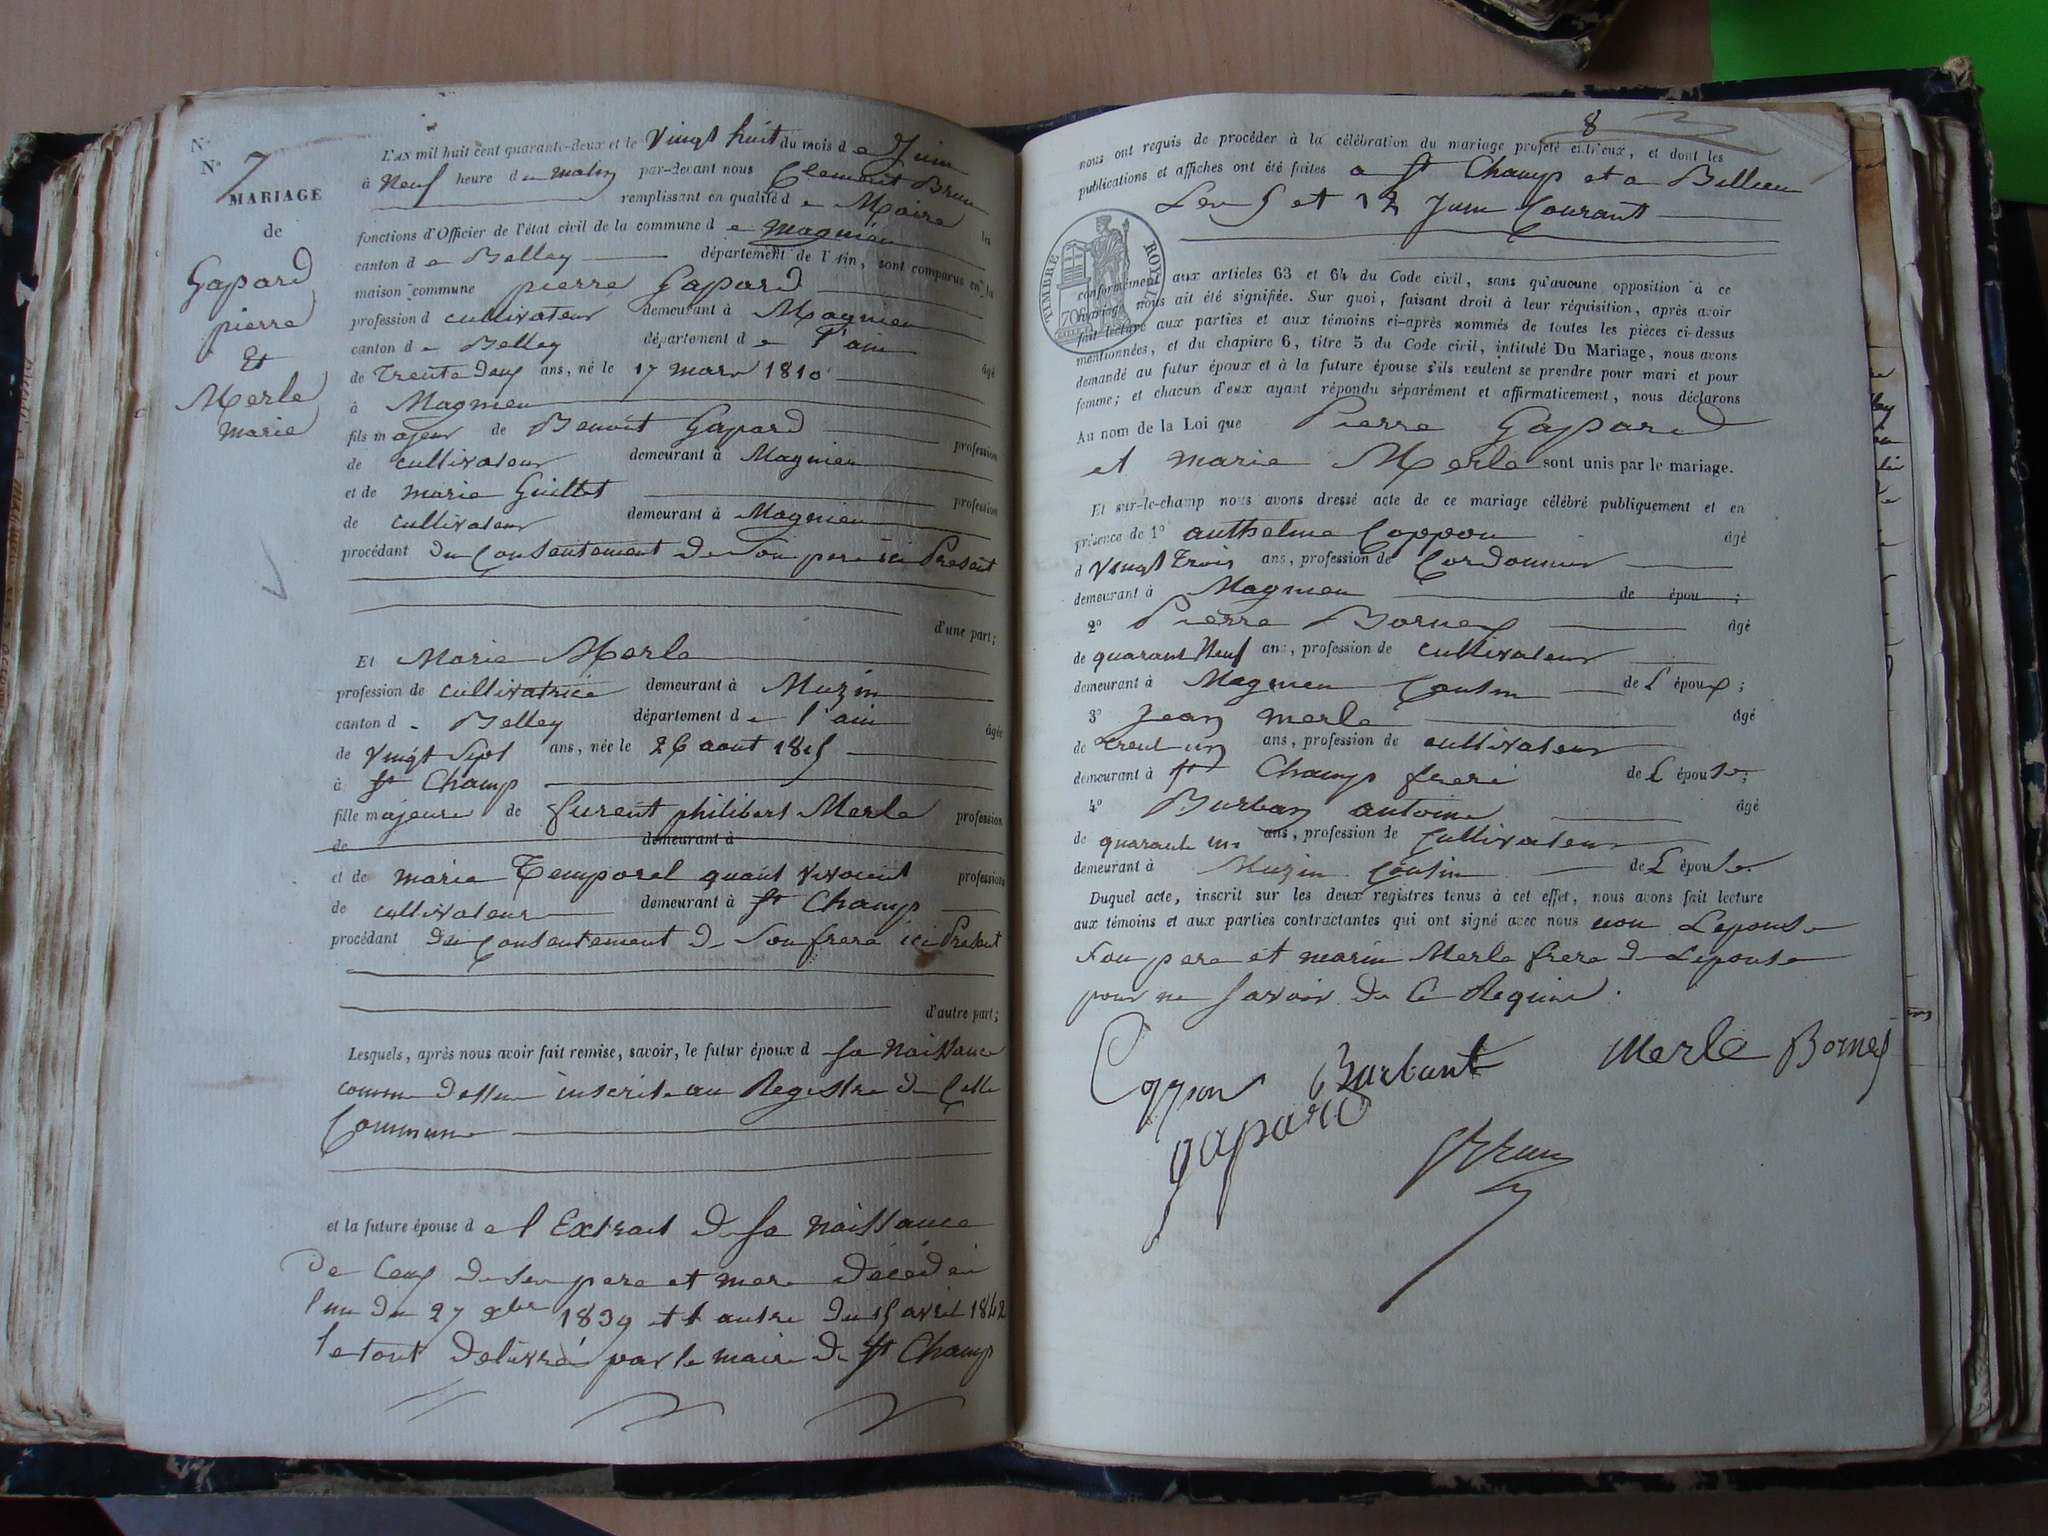 N.
N° 7
MARIAGE
de
Gapard
pierre
Et
Merle
marie
L'AN mil huit cent quarante-deux et le Vingt huit du mois de Juin
à Neuf heure du matin par-devant nous Clement Brun
remplissant en qualité de Maire les
fonctions d'Officier de l'état civil de la commune de Magnieu
canton de Belley département de l'Ain, sont comparus en la
maison commune pierre Gapard
profession d cultivateur demeurant à Magnieu
canton de Belley département de l'ain
âgé
de Trente deux ans, né le 17 mars 1810
à Magnieu
fils majeur de Benoit Gapard profession
de cultivateur demeurant à Magnieu
et de marie Guillet profession
de cultivateur demeurant à Magnieu
procédant du Consentement de Son pere ici Present
d'une part;
Et Marie Merle
profession de cultivatrice demeurant à Muzin
canton de Belley département de l'ain
âgée
de Vingt Sept ans, née le 26 aout 1815
à St Champ
fille majeure de furent philibert Merle profession
de demeurant à
et de marie Temporel quant vivoient profession
de cultivateur demeurant à St Champ
procédant du Consentement de Son frere ici Present
d'autre part;
Lesquels, après nous avoir fait remise, savoir, le futur époux d sa Naissance
comme dessus inscrite au Registre de Cette
Commune
et la future épouse de l'Extrait de sa Naissance
De Ceux de ses pere et mere décédés
l'un du 27 xbre 1839 et l'autre du 15 avril 1842
le tout délivré par le maire de St Champ
8
nous ont requis de procéder à la célébration du mariage projeté entr'eux, et dont les
publications et affiches ont été faites a St Champ et a Billieu
Les 5 et 12 Juin Courant
TIMBRE ROYAL
70
conformément aux articles 63 et 64 du Code civil, sans qu'aucune opposition à ce
mariage nous ait été signifiée. Sur quoi, faisant droit à leur réquisition, après avoir
fait lecture aux parties et aux témoins ci-après nommés de toutes les pièces ci-dessus
mentionnées, et du chapitre 6, titre 5 du Code civil, intitulé Du Mariage, nous avons
demandé au futur époux et à la future épouse s'ils veulent se prendre pour mari et pour
femme; et chacun d'eux ayant répondu séparément et affirmativement, nous déclarons
Au nom de la Loi que Pierre Gapard
et marie Merle sont unis par le mariage.
Et sur-le-champ nous avons dressé acte de ce mariage célébré publiquement et en
présence de 1° anthelme Coppon âgé
d Vingt Trois ans, profession de Cordonnier
demeurant à Magnieu de épou ;
2° Pierre Bornex âgé
de quarant Neuf ans, profession de cultivateur
demeurant à Magnieu Cousin de L'époux;
3° Jean Merle âgé
de trent un ans, profession de cultivateur
demeurant à St Champ frere de L'épouse;
4° Burban antoine âgé
de quarante un ans, profession de Cultivateur
demeurant à Muzin Cousin de L'épouse.
Duquel acte, inscrit sur les deux registres tenus à cet effet, nous avons fait lecture
aux témoins et aux parties contractantes qui ont signé avec nous non Lepouse
Son pere et marin Merle frere de Lepouse
pour ne Savoir de Ce Requis.
Coppon Burbant Merle Bornex
gapard
Brun